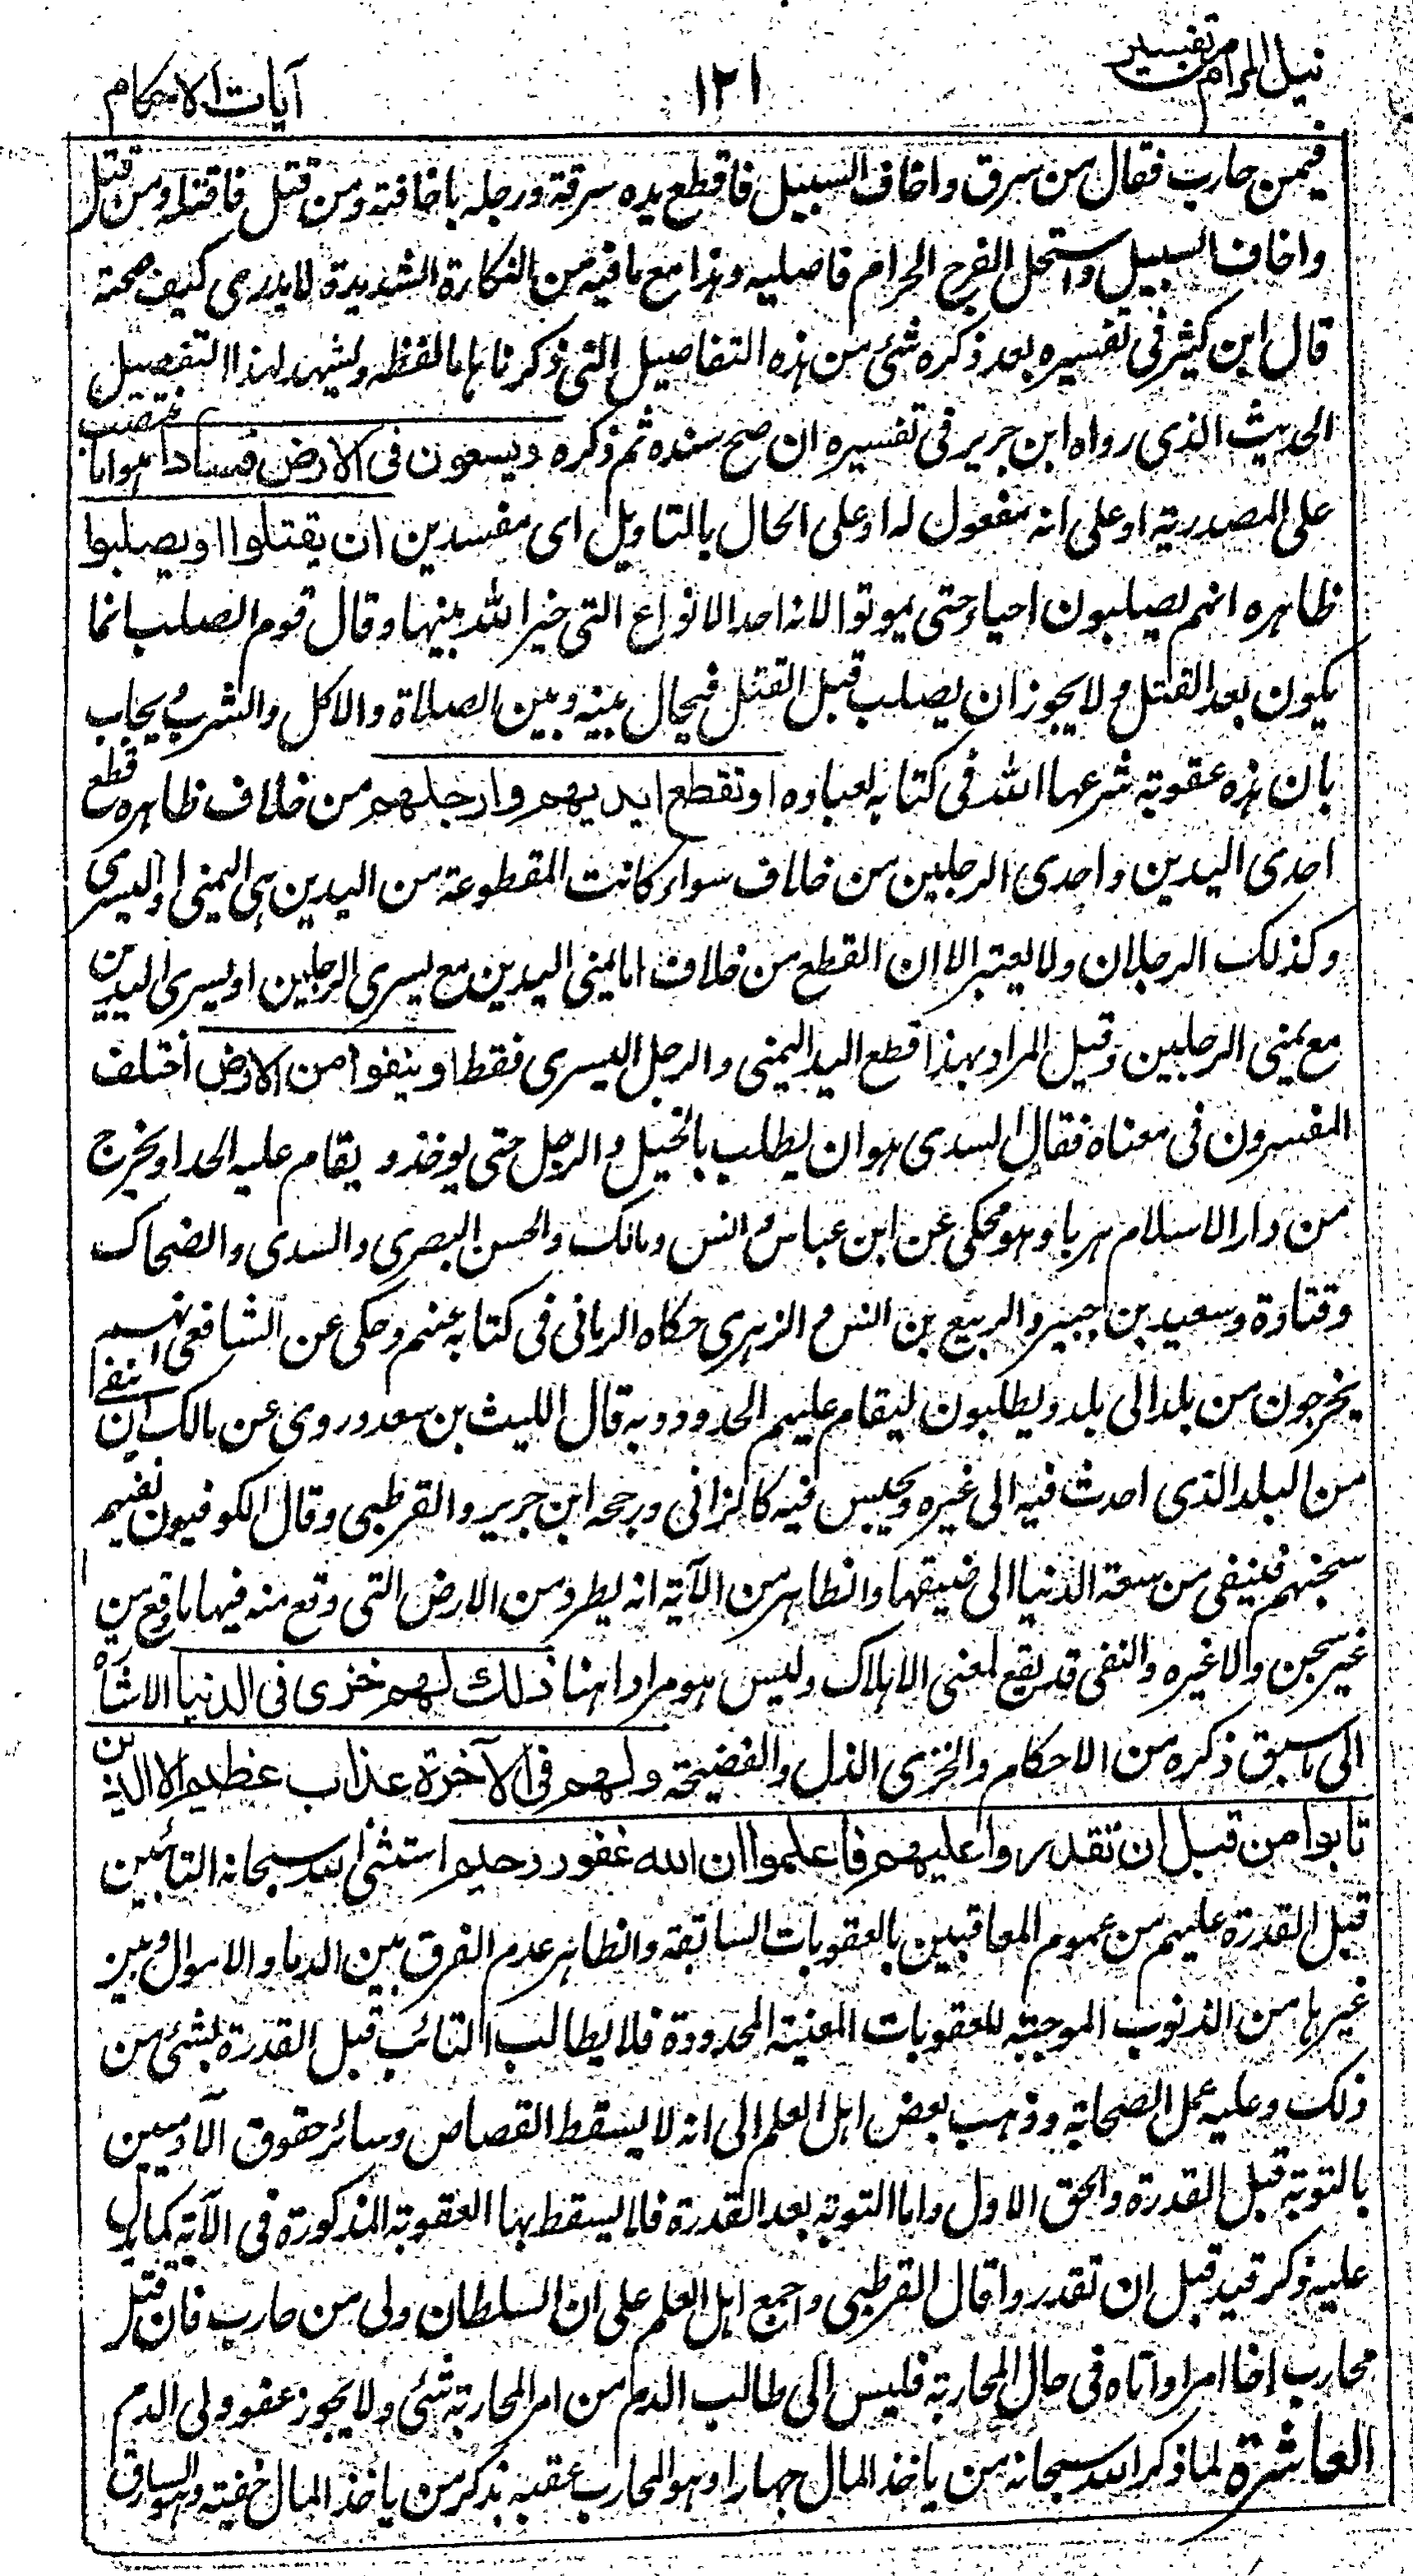 نيل المرام من تفسير
١٢١
آيات الاحكام
فيمن حارب فقال من سرق واخاف السبيل فاقطع يده سرقة ورجله باخافة ومن قتل فاقتله ومن قتل
واخاف السبيل واستحل الفرج الحرام فاصلبه وهذا مع ما فيه من النكارة الشديدة لا يدرى كيف صحته
قال ابن كثير فى تفسيره بعد ذكره شئ من هذه التفاصيل التى ذكرناها ما لفظه ويشهد لهذا التفصيل
الحديث الذى رواه ابن جرير فى تفسيره ان صح سنده ثم ذكره ويسعون فى الارض فسادا هو اما منتصب
على المصدرية او على انه مفعول له او على الحال بالتاويل اى مفسدين ان يقتلوا او يصلبوا
ظاهره انهم يصلبون احياء حتى يموتوا لانه احد الانواع التى خير الله بينها وقال قوم الصلب انما
يكون بعد القتل ولا يجوز ان يصلب قبل القتل فيحال بينه وبين الصلاة والاكل والشرب ويجاب
بان هذه عقوبة شرعها الله فى كتابه لعباده او تقطع ايديهم وارجلهم من خلاف ظاهره قطع
احدى اليدين واحدى الرجلين من خلاف سواء كانت المقطوعة من اليدين هى اليمنى او اليسرى
وكذلك الرجلان ولا يعتبر الا ان القطع من خلاف اما يمنى اليدين مع يسرى الرجلين او يسرى اليدين
مع يمنى الرجلين وقيل المراد بهذا قطع اليد اليمنى والرجل اليسرى فقط او ينفوا من الارض اختلف
المفسرون فى معناه فقال السدى هو ان يطلب بالخيل والرجل حتى يوخذ ويقام عليه الحد او يخرج
من دار الاسلام هربا وهو محكى عن ابن عباس وانس ومالك والحسن البصرى والسدى والضحاك
وقتادة وسعيد بن جبير والربيع بن انس والزهرى حكاه الرمانى فى كتابه عنهم وحكى عن الشافعى انهم
يخرجون من بلد الى بلد ويطلبون ليقام عليهم الحدود وبه قال الليث بن سعد وروى عن مالك انه ينفى
من البلد الذى احدث فيه الى غيره ويحبس فيه كالزانى ورجحه ابن جرير والقرطبى وقال الكوفيون نفيهم
سجنهم فينفى من سعة الدنيا الى ضيقها والظاهر من الآية انه يطرد من الارض التى وقع منه فيها ما وقع من
غير سجن ولا غيره والنفى قد يقع بمعنى الاهلاك وليس هو مرادا هنا ذلك لهم خزى فى الدنيا الاشارة
الى ما سبق ذكره من الاحكام والخزى الذل والفضيحة ولهم فى الآخرة عذاب عظيم الا الذين
تابوا من قبل ان تقدروا عليهم فاعلموا ان الله غفور رحيم استثنى الله سبحانه التائبين
قبل القدرة عليهم من عموم المعاقبين بالعقوبات السابقة والظاهر عدم الفرق بين الدماء والاموال وبين
غيرها من الذنوب الموجبة للعقوبات المعينة المحدودة فلا يطالب التائب قبل القدرة بشئ من
ذلك وعليه عمل الصحابة وذهب بعض اهل العلم الى انه لا يسقط القصاص وسائر حقوق الآدميين
بالتوبة قبل القدرة والحق الاول واما التوبة بعد القدرة فلا يسقط بها العقوبة المذكورة فى الآية كما يدل
عليه ذكر قيد قبل ان تقدروا قال القرطبى واجمع اهل العلم على ان السلطان ولى من حارب فان قتل
محارب اخا امرا واتاه فى حال المحاربة فليس الى طالب الدم من امر المحاربة شئ ولا يجوز عفو ولى الدم
العاشرة لما ذكر الله سبحانه من ياخذ المال جهارا وهو المحارب عقبه بذكر من ياخذ المال خفية وهو السارق